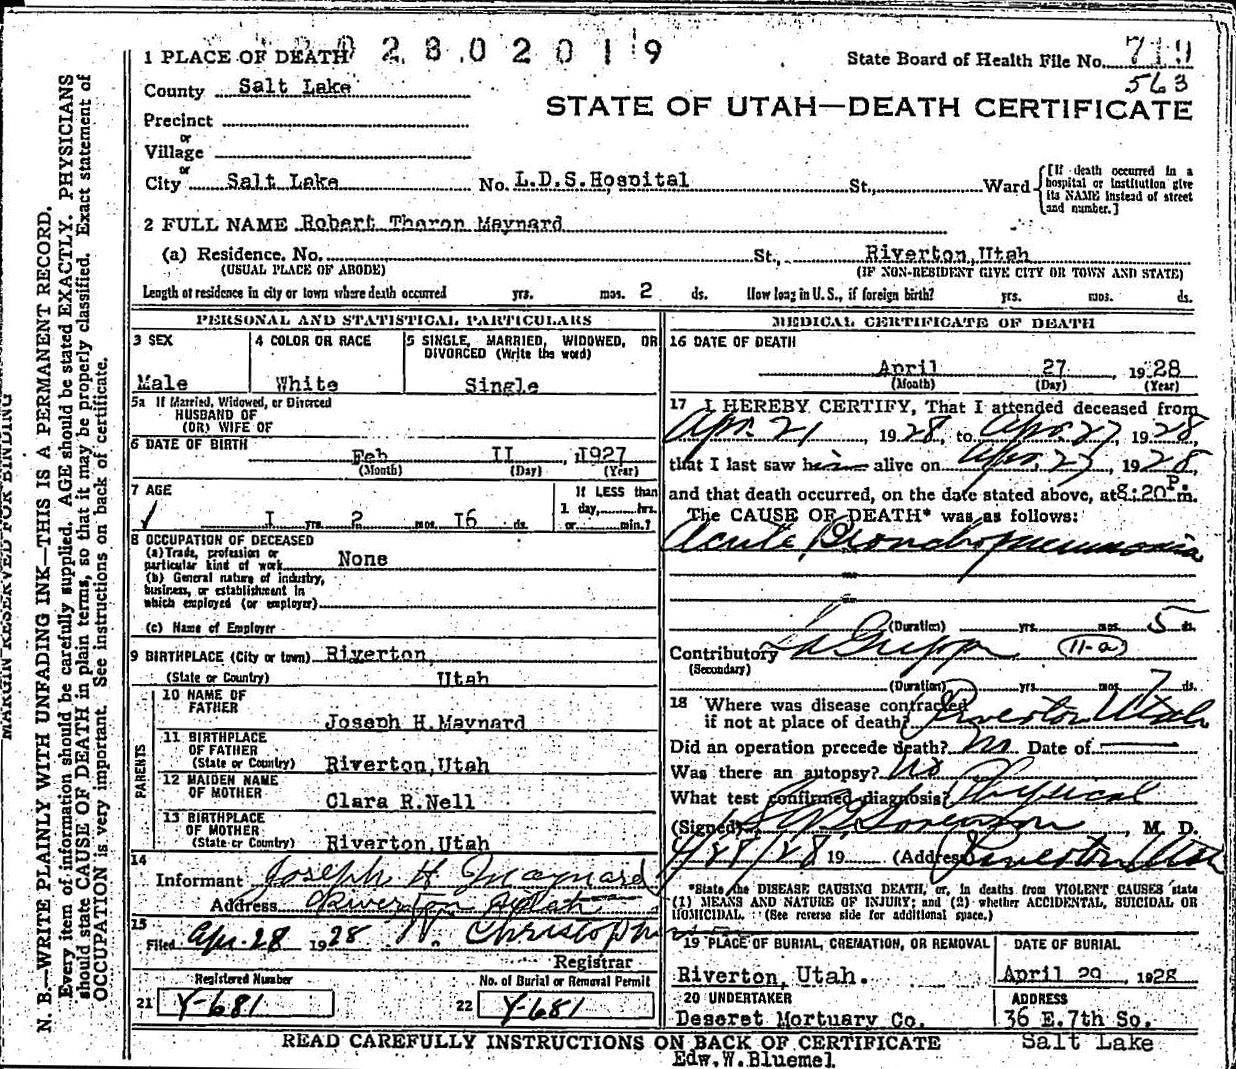 2 8 0 2 0 1 9
1 PLACE OF DEATH
State Board of Health File No. 719
563
County Salt Lake
STATE OF UTAH—DEATH CERTIFICATE
Precinct
or
Village
or
City Salt Lake No. L.D.S.Hospital St., Ward
[If death occurred in a hospital or institution give its NAME instead of street and number.]
2 FULL NAME Robert Theron Maynard
(a) Residence. No. St., Riverton,Utah
(USUAL PLACE OF ABODE) (IF NON-RESIDENT GIVE CITY OR TOWN AND STATE)
Length of residence in city or town where death occurred yrs. mos. 2 ds. How long in U. S., if foreign birth? yrs. mos. ds.
PERSONAL AND STATISTICAL PARTICULARS
3 SEX
Male
4 COLOR OR RACE
White
5 SINGLE, MARRIED, WIDOWED, OR
DIVORCED (Write the word)
Single
5a If Married, Widowed, or Divorced
HUSBAND OF
(OR) WIFE OF
6 DATE OF BIRTH
Feb II , 1927
(Month) (Day) (Year)
7 AGE
I yrs. 2 mos. I6 ds.
If LESS than
1 day, hrs.
or min.?
8 OCCUPATION OF DECEASED
(a) Trade, profession or
particular kind of work None
(b) General nature of industry,
business, or establishment in
which employed (or employer)
(c) Name of Employer
9 BIRTHPLACE (City or town) Riverton,
(State or Country) Utah
PARENTS
10 NAME OF
FATHER
Joseph H.Maynard
11 BIRTHPLACE
OF FATHER
(State or Country) Riverton,Utah
12 MAIDEN NAME
OF MOTHER
Clara R.Nell
13 BIRTHPLACE
OF MOTHER
(State or Country) Riverton,Utah
14
Informant Joseph H Maynard
Address Riverton Utah
15
Filed Apr. 28 1928 Christoph
Registrar
Registered Number No. of Burial or Removal Permit
21 Y-681 22 Y-681
MEDICAL CERTIFICATE OF DEATH
16 DATE OF DEATH
April 27 , 1928
(Month) (Day) (Year)
17 I HEREBY CERTIFY, That I attended deceased from
Apr. 21, 1928, to Apr. 27, 1928,
that I last saw him alive on Apr. 27, 1928
and that death occurred, on the date stated above, at 8:20 P. m.
The CAUSE OF DEATH* was as follows:
Acute Bronchopneumonia
(Duration) yrs. mos. 5 ds.
Contributory La Grippe 11-a
(Secondary)
(Duration) yrs. mos. 7 ds.
18 Where was disease contracted
if not at place of death? Riverton Utah
Did an operation precede death? No Date of
Was there an autopsy? No
What test confirmed diagnosis? Physical
(Signed) Sorenson, M. D.
4/28/28 19 (Address) Riverton, Utah
*State the DISEASE CAUSING DEATH, or, in deaths from VIOLENT CAUSES state
(1) MEANS AND NATURE OF INJURY; and (2) whether ACCIDENTAL, SUICIDAL OR
HOMICIDAL. (See reverse side for additional space.)
19 PLACE OF BURIAL, CREMATION, OR REMOVAL
Riverton, Utah.
DATE OF BURIAL
April 29 , 1928
20 UNDERTAKER
Deseret Mortuary Co.
ADDRESS
36 E.7th So.
Salt Lake
READ CAREFULLY INSTRUCTIONS ON BACK OF CERTIFICATE
Edw.W.Bluemel
MARGIN RESERVED FOR BINDING
N. B.—WRITE PLAINLY WITH UNFADING INK—THIS IS A PERMANENT RECORD.
Every item of information should be carefully supplied. AGE should be stated EXACTLY. PHYSICIANS
should state CAUSE OF DEATH in plain terms, so that it may be properly classified. Exact statement of
OCCUPATION is very important. See instructions on back of certificate.